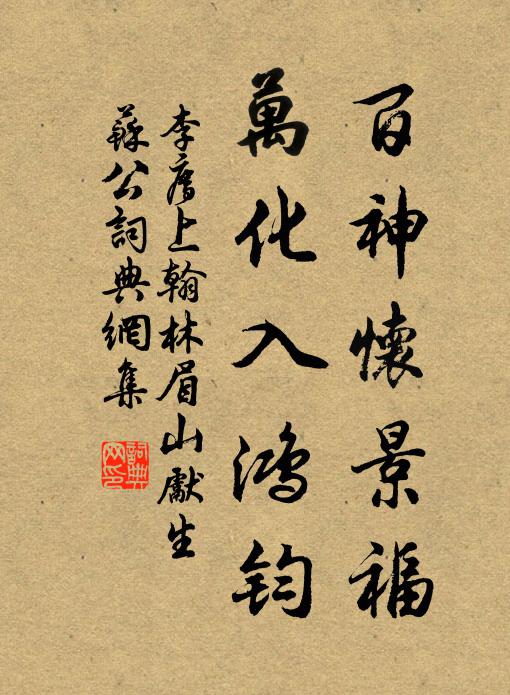 百神懷景福
萬化入鴻鈞
李廌上翰林眉山獻生
蘇公詞典網集
詞典網印